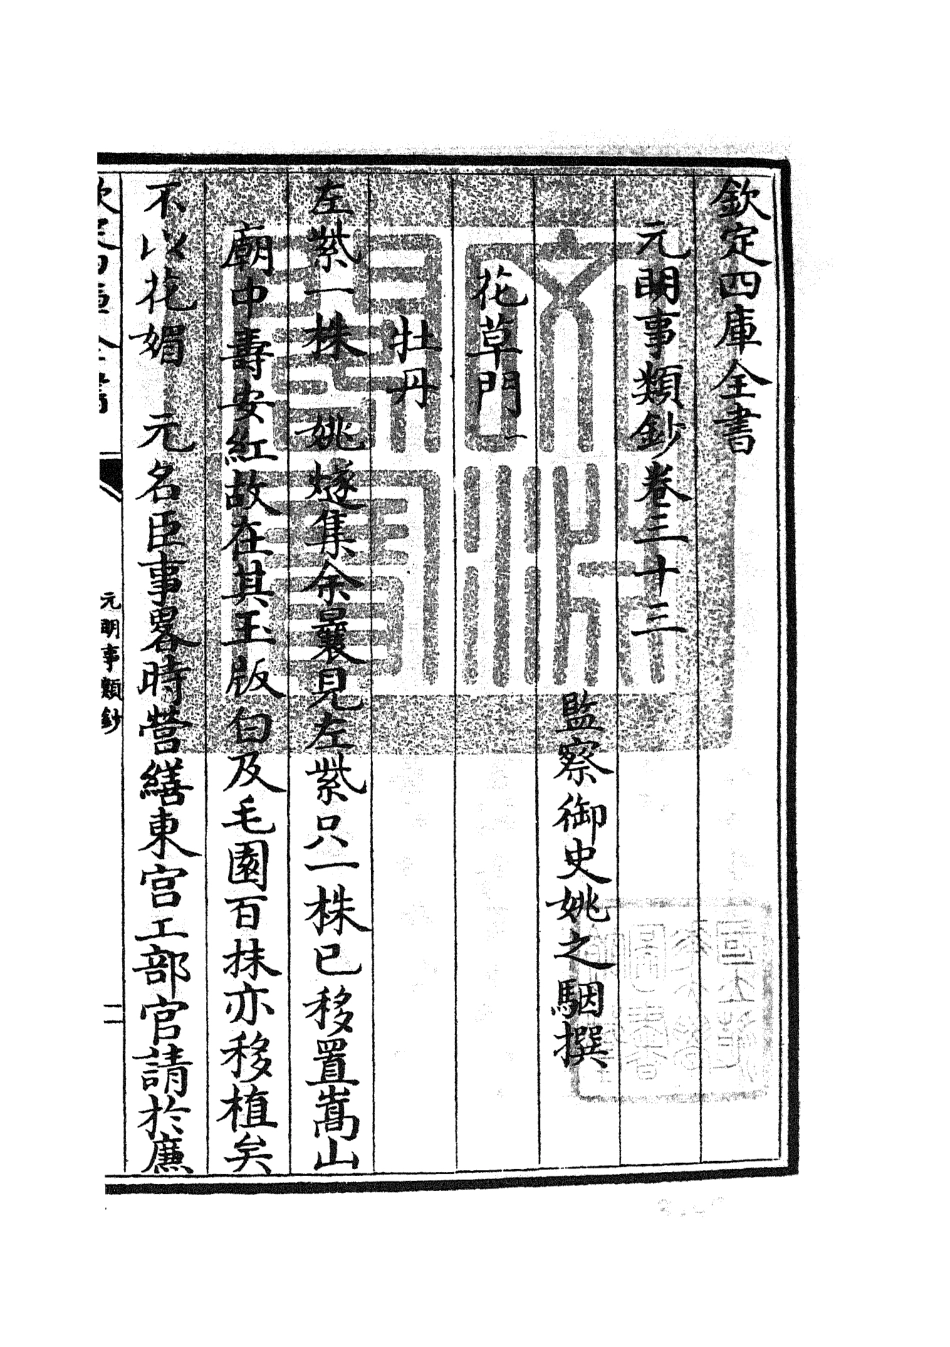 欽定四庫全書
元明事類鈔卷三十三
監察御史姚之駰撰
花草門一
牡丹
左紫一株　姚燧集余曩見左紫只一株已移置嵩山
廟中壽安紅故在其玉版白及毛園百抹亦移植矣
不以花媚　元名臣事畧時營繕東宫工部官請於廉
欽定四庫全書
元明事類鈔
二